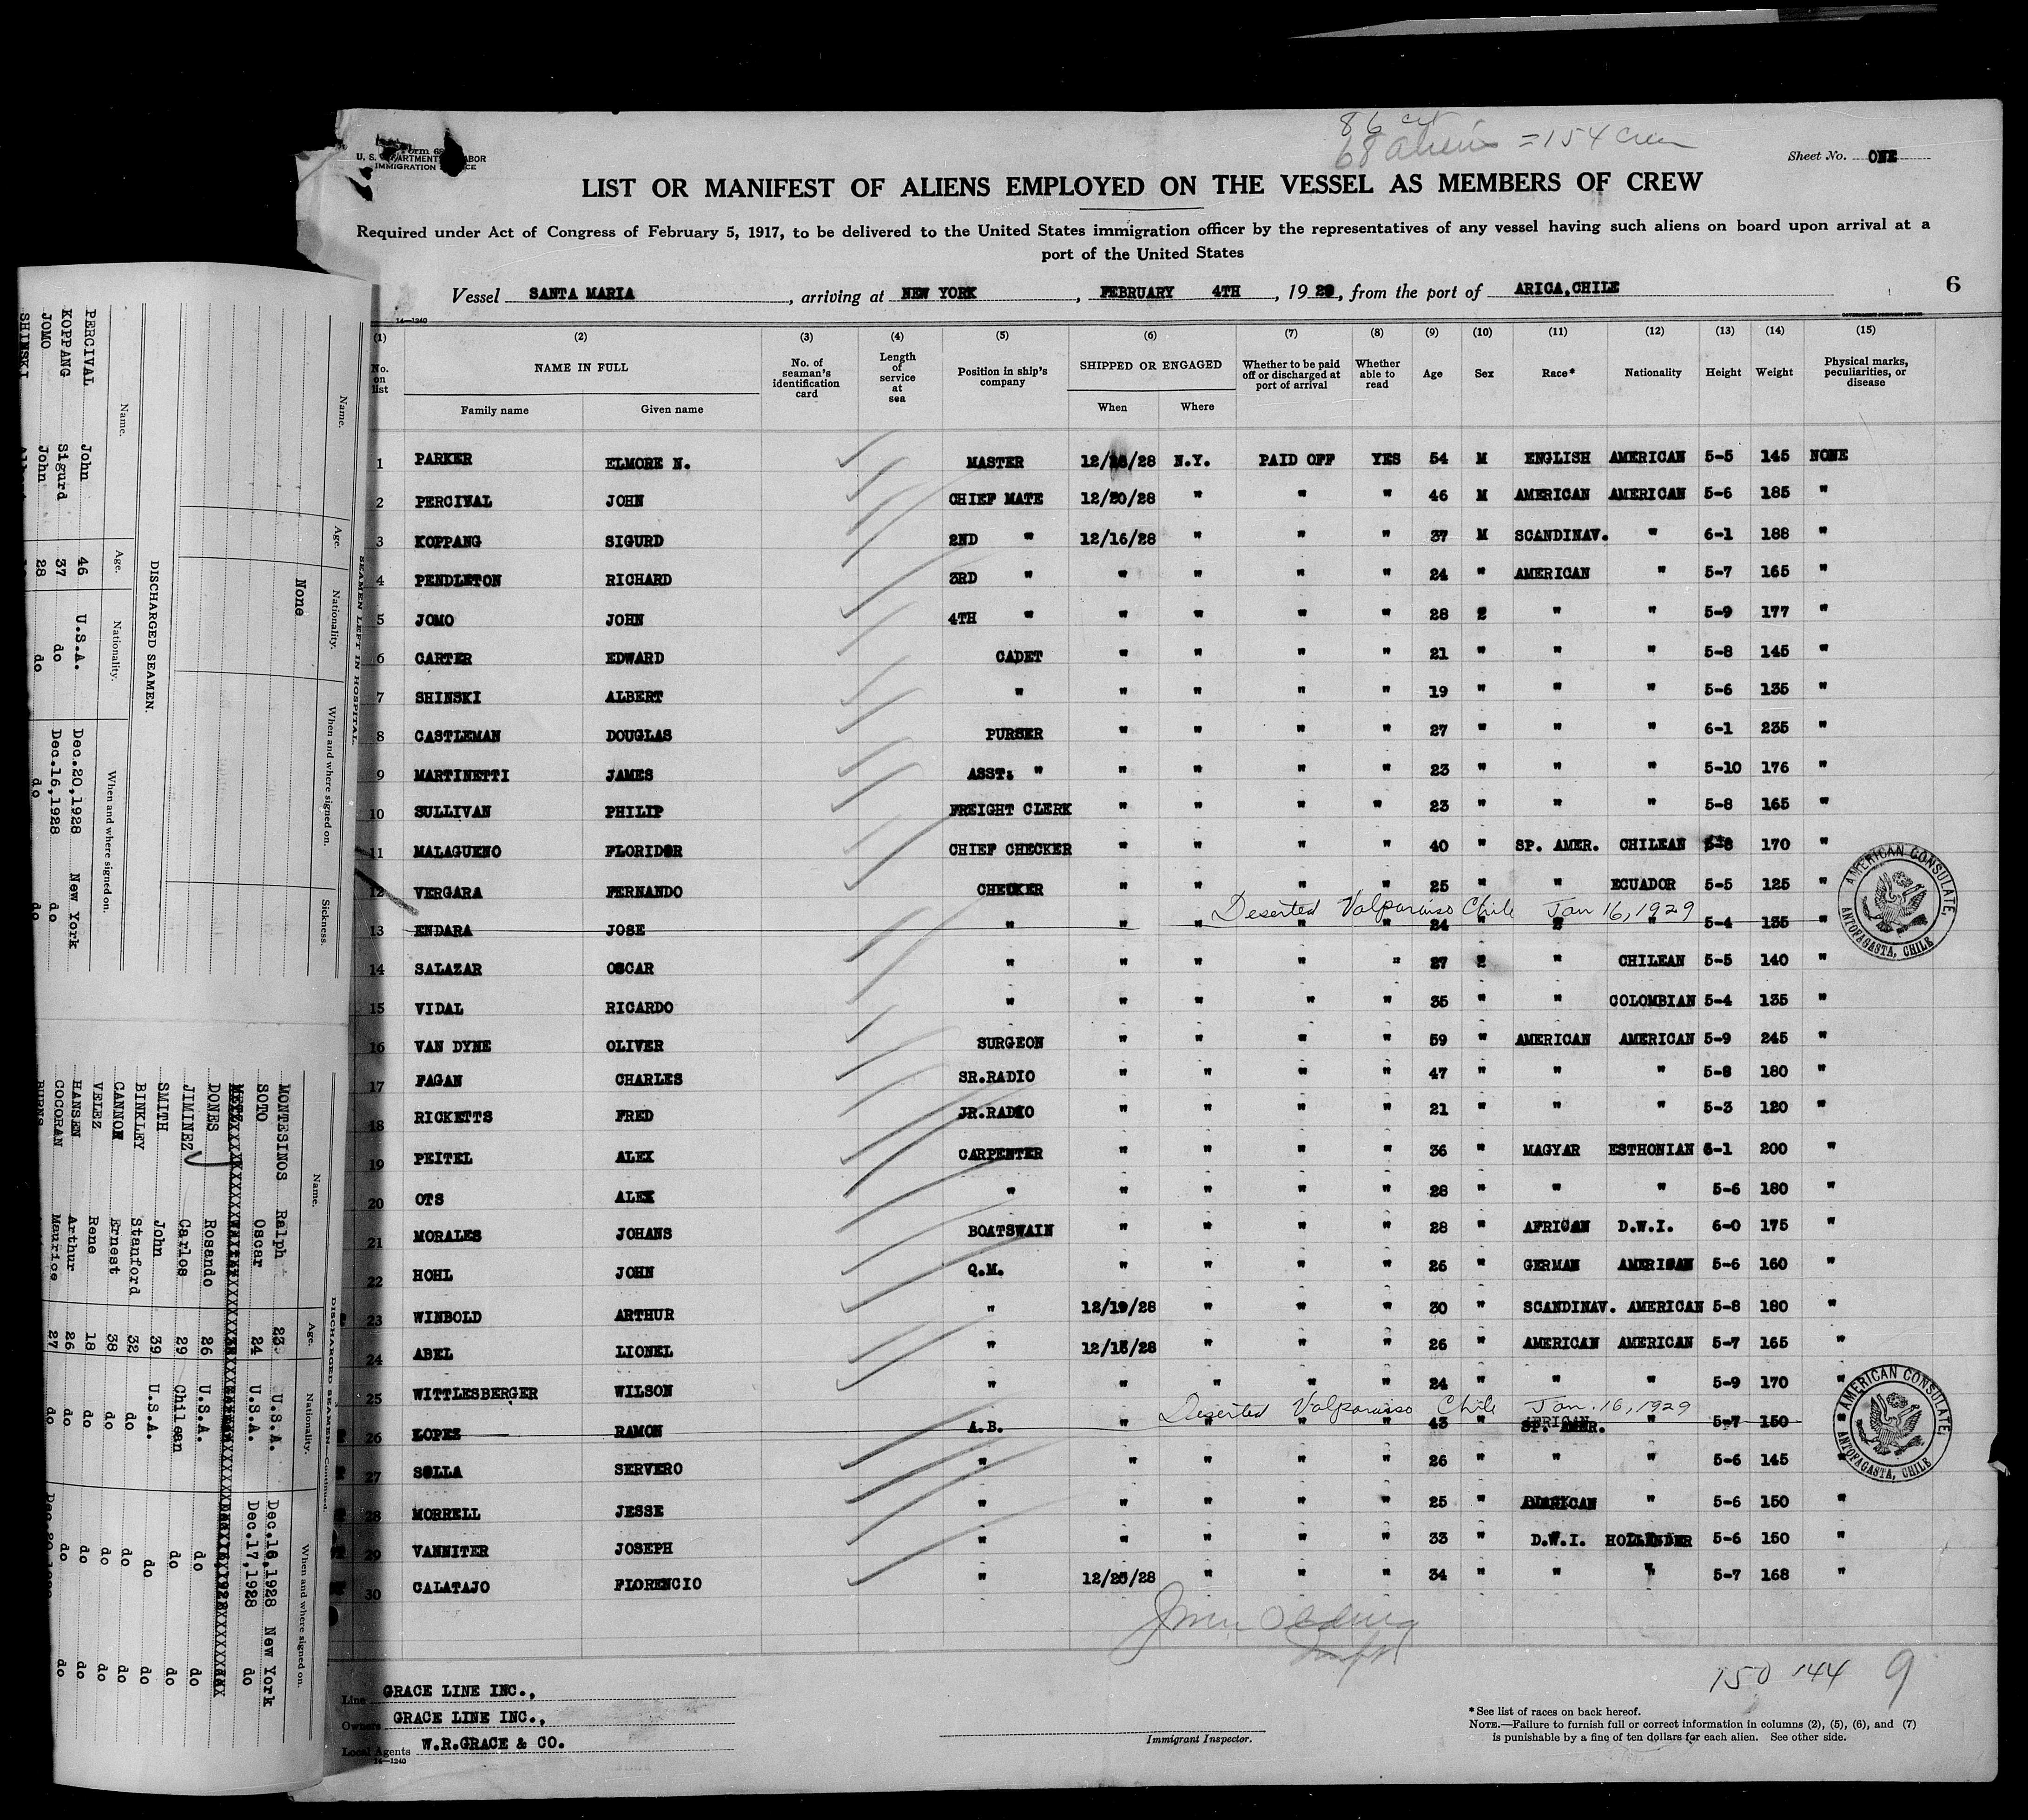 86 cit
68 aliens = 154 crew
Form 68
U. S. DEPARTMENT LABOR
IMMIGRATION
Sheet No. ONE
LIST OR MANIFEST OF ALIENS EMPLOYED ON THE VESSEL AS MEMBERS OF CREW
Required under Act of Congress of February 5, 1917, to be delivered to the United States immigration officer by the representatives of any vessel having such aliens on board upon arrival at a
port of the United States
Vessel SANTA MARIA, arriving at NEW YORK, FEBRUARY 4TH, 1929, from the port of ARICA,CHILE
6
14—1240
(1) (2) (3) (4) (5) (6) (7) (8) (9) (10) (11) (12) (13) (14) (15)
No. on list NAME IN FULL No. of seaman's identification card Length of service at sea Position in ship's company SHIPPED OR ENGAGED Whether to be paid off or discharged at port of arrival Whether able to read Age Sex Race* Nationality Height Weight Physical marks, peculiarities, or disease
Family name Given name When Where
1 PARKER ELMORE N. MASTER 12/ /28 N.Y. PAID OFF YES 54 M ENGLISH AMERICAN 5-5 145 NONE
2 PERCIVAL JOHN CHIEF MATE 12/20/28 " " " 46 M AMERICAN AMERICAN 5-6 185 "
3 KOPPANG SIGURD 2ND " 12/16/28 " " " 37 M SCANDINAV. " 6-1 188 "
4 PENDLETON RICHARD 3RD " " " " " 24 " AMERICAN " 5-7 165 "
5 JOMO JOHN 4TH " " " " " 28 2 " " 5-9 177 "
6 CARTER EDWARD CADET " " " " 21 " " " 5-8 145 "
7 SHINSKI ALBERT " " " " " 19 " " " 5-6 135 "
8 CASTLEMAN DOUGLAS PURSER " " " " 27 " " " 6-1 235 "
9 MARTINETTI JAMES ASST. " " " " " 23 " " " 5-10 176 "
10 SULLIVAN PHILIP FREIGHT CLERK " " " " 23 " " " 5-8 165 "
11 MALAGUENO FLORIDOR CHIEF CHECKER " " " " 40 " SP. AMER. CHILEAN 5-8 170 "
12 VERGARA FERNANDO CHECKER " " " " 25 " " ECUADOR 5-5 125 "
Deserted Valparaiso Chile Jan 16, 1929
13 ENDARA JOSE " " " " " 24 " " " 5-4 135 "
AMERICAN CONSULATE, ANTOFAGASTA, CHILE
14 SALAZAR OSCAR " " " " " 27 2 " CHILEAN 5-5 140 "
15 VIDAL RICARDO " " " " " 35 " " COLOMBIAN 5-4 135 "
16 VAN DYNE OLIVER SURGEON " " " " 59 " AMERICAN AMERICAN 5-9 245 "
17 FAGAN CHARLES SR.RADIO " " " " 47 " " " 5-8 180 "
18 RICKETTS FRED JR.RADIO " " " " 21 " " " 5-3 120 "
19 PEITEL ALEX CARPENTER " " " " 36 " MAGYAR ESTHONIAN 6-1 200 "
20 OTS ALEX " " " " " 28 " " " 5-6 180 "
21 MORALES JOHANS BOATSWAIN " " " " 28 " AFRICAN D.W.I. 6-0 175 "
22 HOHL JOHN Q.M. " " " " 26 " GERMAN AMERICAN 5-6 160 "
23 WINBOLD ARTHUR " 12/19/28 " " " 30 " SCANDINAV. AMERICAN 5-8 180 "
24 ABEL LIONEL " 12/13/28 " " " 26 " AMERICAN AMERICAN 5-7 165 "
25 WITTLESBERGER WILSON " " " " " 24 " " " 5-9 170 "
Deserted Valparaiso Chile Jan. 16, 1929
26 LOPEZ RAMON A.B. " " " " 43 " SP. AMER. " 5-7 150 "
AMERICAN CONSULATE, ANTOFAGASTA, CHILE
27 SOLLA SERVERO " " " " " 26 " " " 5-6 145 "
28 MORRELL JESSE " " " " " 25 " AMERICAN " 5-6 150 "
29 VANNITER JOSEPH " " " " " 33 " D.W.I. HOLLANDER 5-6 150 "
30 CALATAJO FLORENCIO " 12/25/28 " " " 34 " " " 5-7 168 "
150 144 9
Line GRACE LINE INC.,
Owners GRACE LINE INC.,
Local Agents W.R.GRACE & CO.
14—1240
Immigrant Inspector.
*See list of races on back hereof.
NOTE.—Failure to furnish full or correct information in columns (2), (5), (6), and (7)
is punishable by a fine of ten dollars for each alien. See other side.
SEAMEN LEFT IN HOSPITAL.
Name. Age. Nationality. When and where signed on. Sickness.
None
DISCHARGED SEAMEN.
Name. Age. Nationality. When and where signed on.
PERCIVAL John 46 U.S.A. Dec.20,1928 New York
KOPPANG Sigurd 37 do Dec.16,1928 do
JOMO John 28 do do do
SHINSKI
DISCHARGED SEAMEN—Continued.
Name. Age. Nationality. When and where signed on.
MONTESINOS Ralph 23 U.S.A. Dec.16,1928 New York
SOTO Oscar 24 U.S.A. Dec.17,1928 do
DONES Rosando 26 U.S.A. do do
JIMINEZ Carlos 29 Chilean do do
SMITH John 39 U.S.A. do do
BINKLEY Stanford 32 do do do
CANNON Ernest 38 do do do
VELEZ Rene 18 do do do
HANSEN Arthur 26 do do do
COCORAN Maurice 27 do do